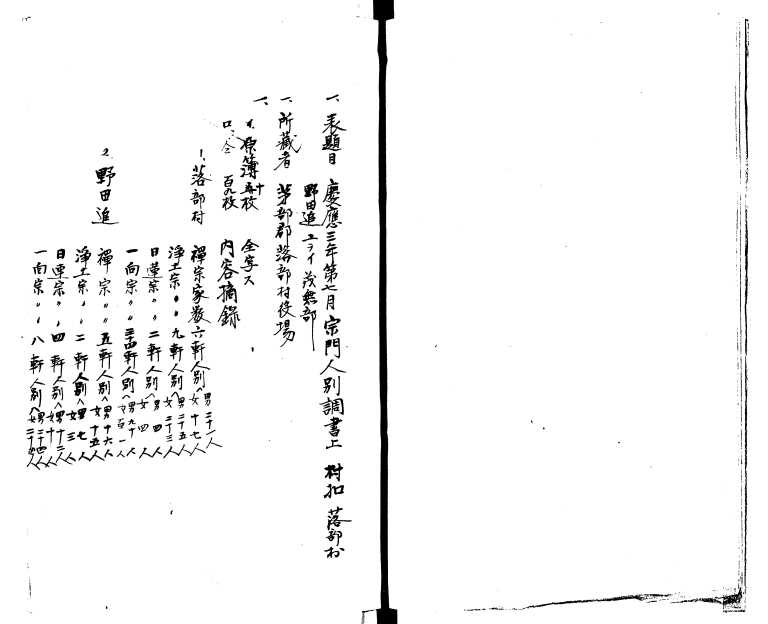 一、表題目 慶應三年第七月宗門人別調書上 村扣 落部村
野田追ユーライ茂無部
一、所藏者 茅部郡落部村役場
一、
イ、原簿五十枚 全寫ス
ロ、仝 百九枚 内容摘錄
1、落部村 禪宗家数六軒人別〈男二十一人 女十七人
浄土宗〃〃九軒人別〈男二十五人 女二十三人
日蓮宗〃〃二軒人別〈男四人 女四人
一向宗〃〃三十四軒人別〈男九十人 女百一人
2、野田追 禪宗〃〃五軒人別〈男十六人 女十五人
浄土宗〃〃二軒人別〈男七人 女三人
日蓮宗〃〃四軒人別〈男十二人 女十人
一向宗〃〃八軒人別〈男二十四人 女二十四人